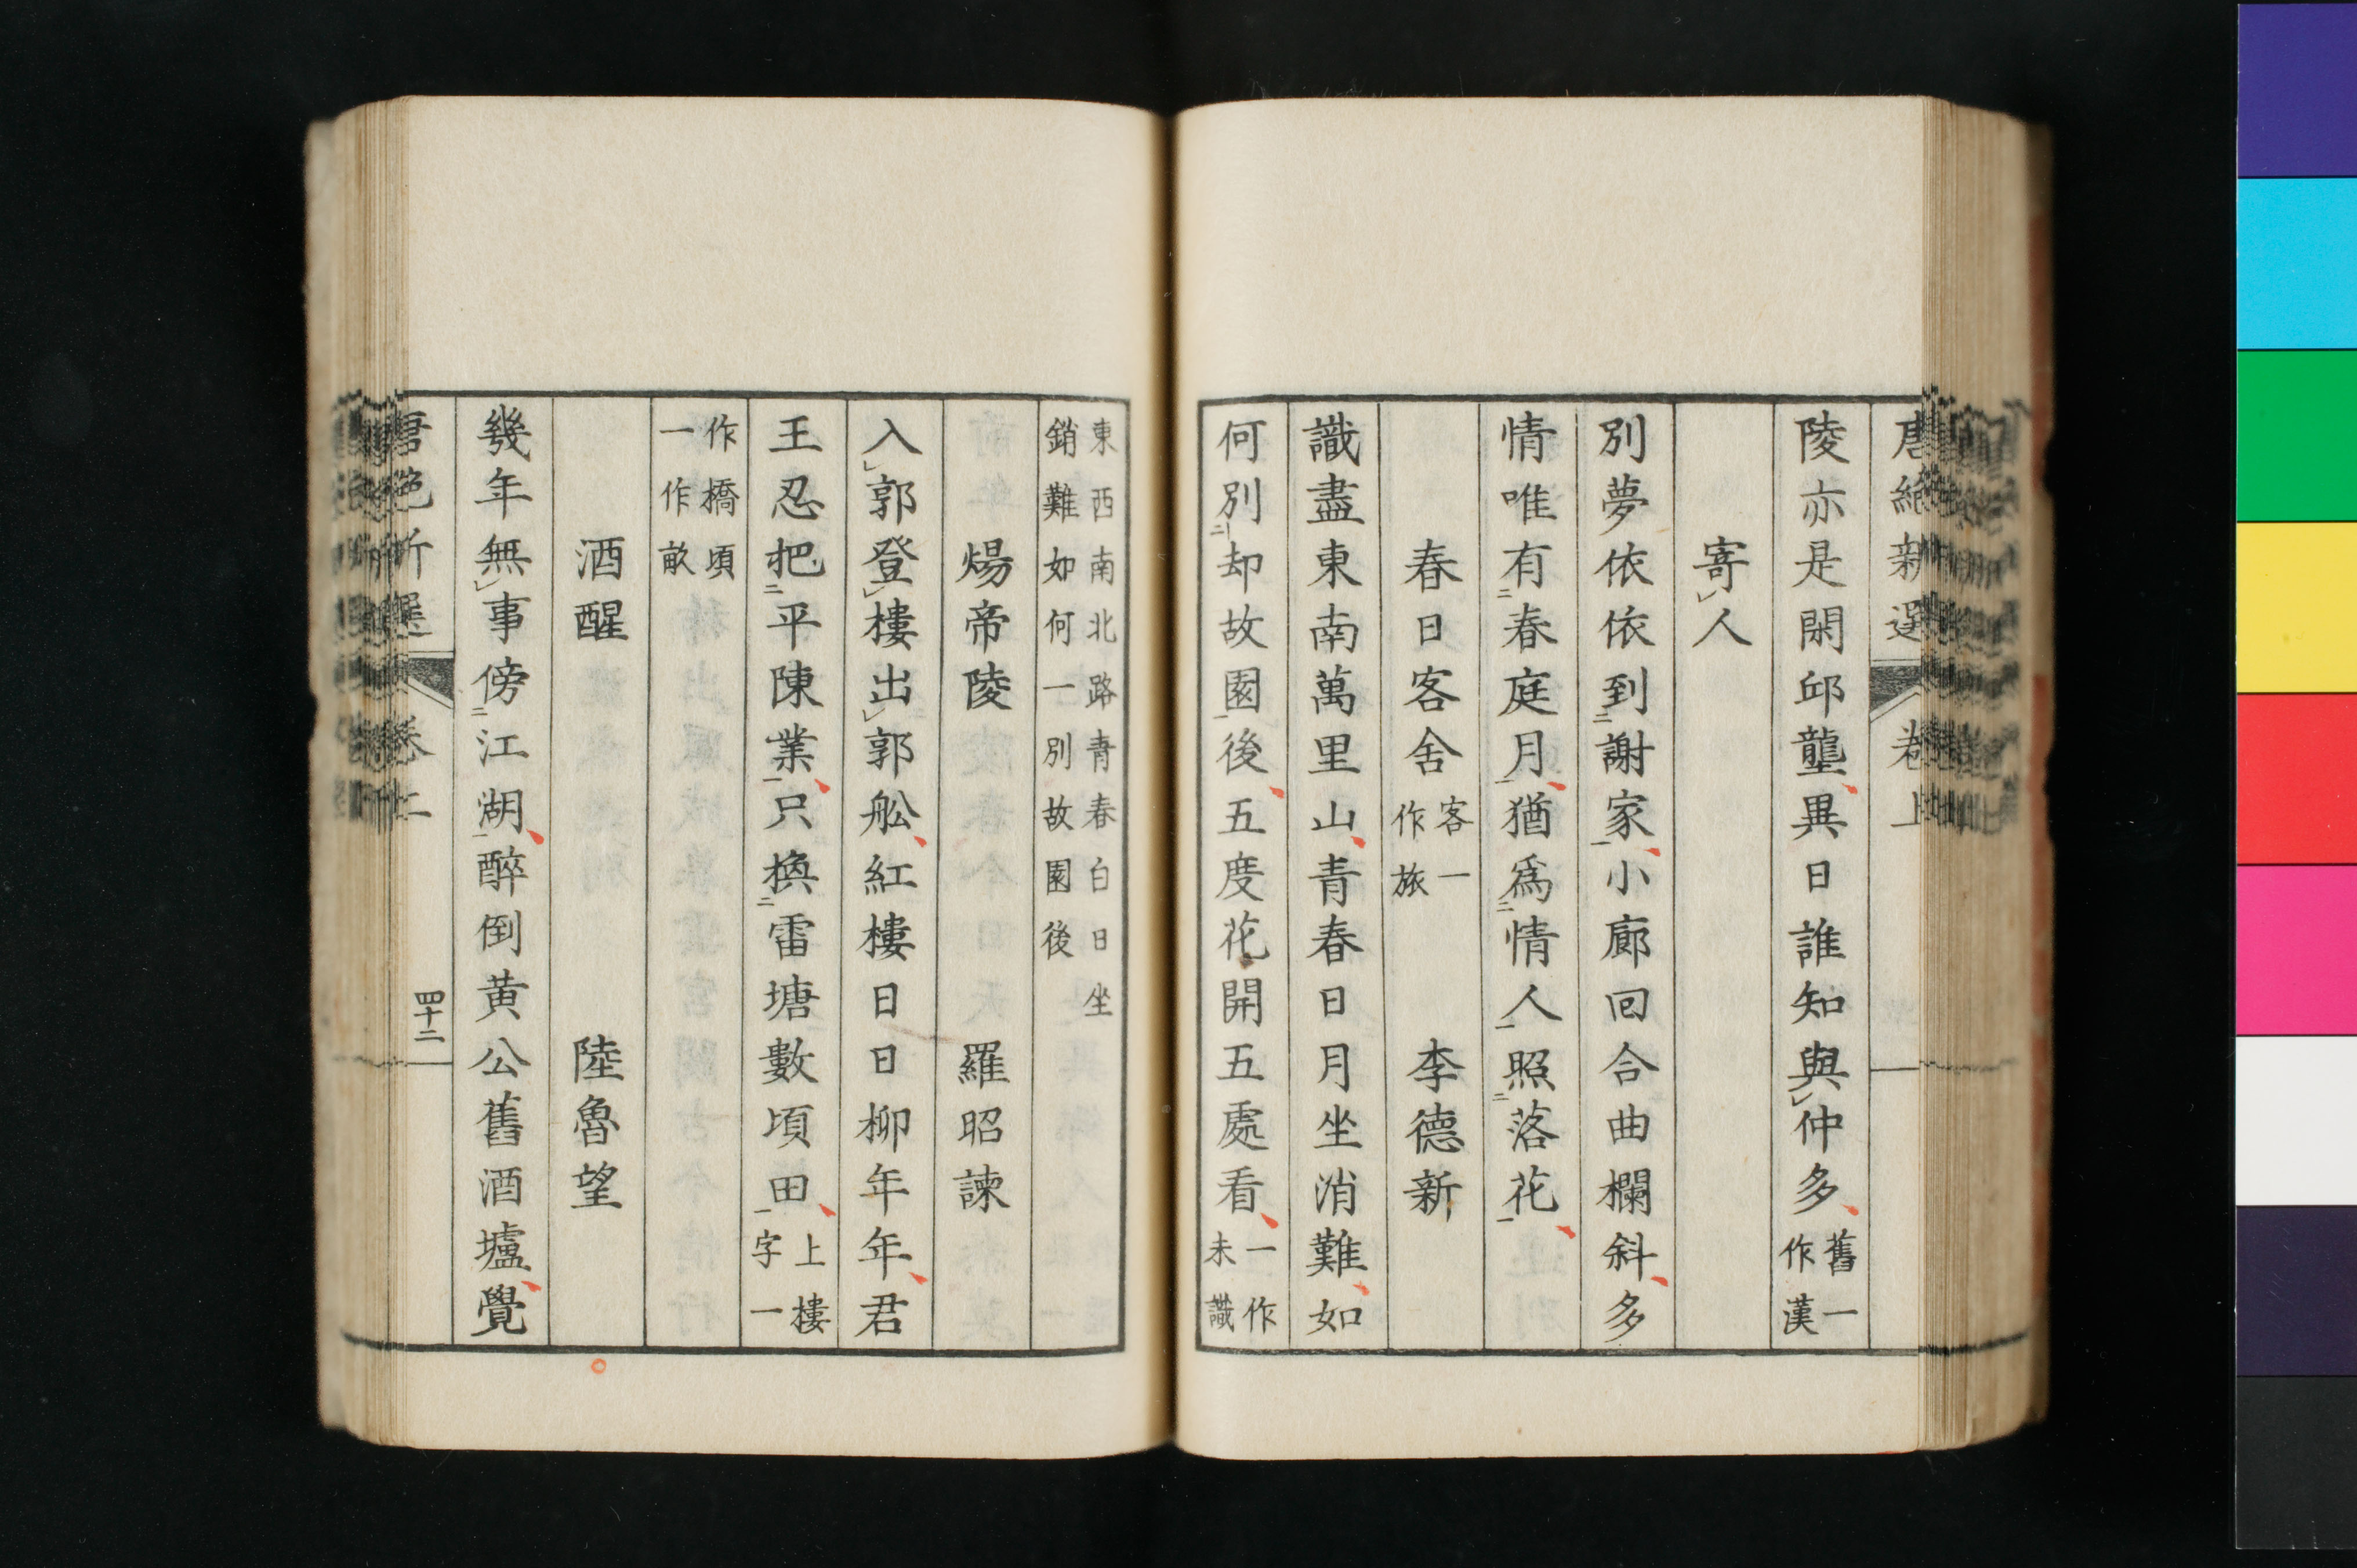 唐絶新選 卷上
陵亦是閑邱壟異日誰知與仲多舊一作漢
寄人
別夢依依到謝家小廊回合曲欄斜多
情唯有春庭月猶爲情人照落花
春日客舍客一作旅 李德新
識盡東南萬里山青春日月坐消難如
何別却故園後五度花開五處看一作未識
東西南北路青春白日坐銷難如何一別故園後
煬帝陵 羅昭諫
入郭登樓出郭舩紅樓日日柳年年君
王忍把平陳業只換雷塘數頃田上樓字一
作橋頃一作畝
酒醒 陸魯望
幾年無事傍江湖醉倒黄公舊酒壚覺
唐絶新選 卷上 四十二